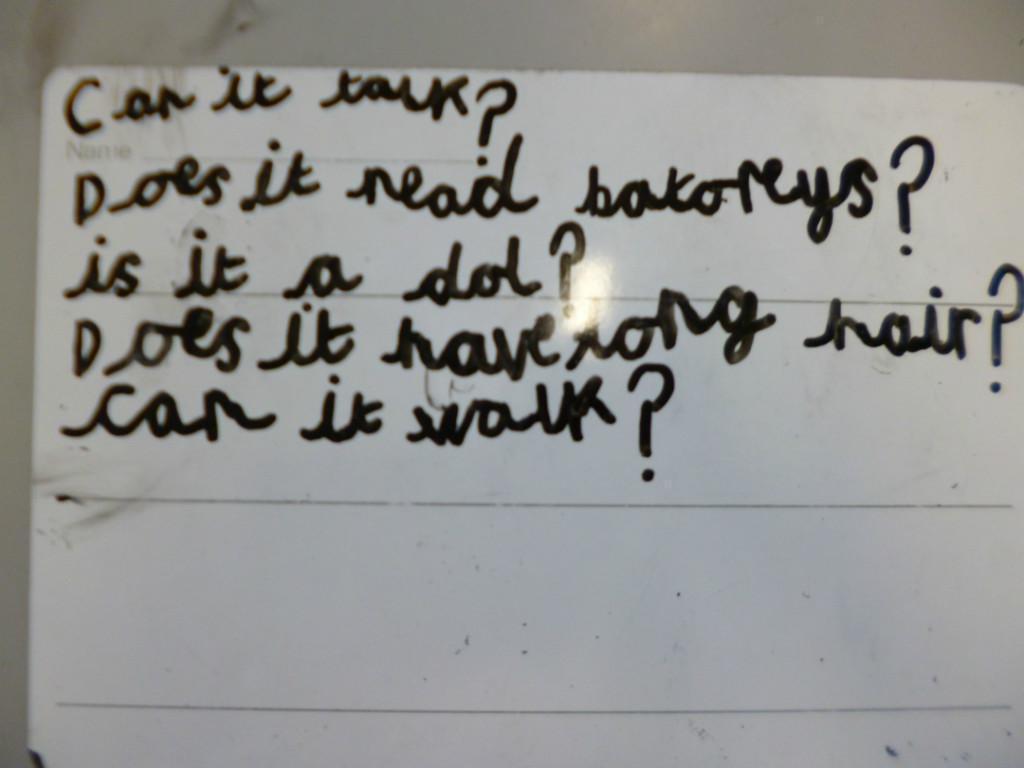 Can it talk?
Name
Does it nead batoreys?
is it a dol?
Does it have long hair?
can it walk?